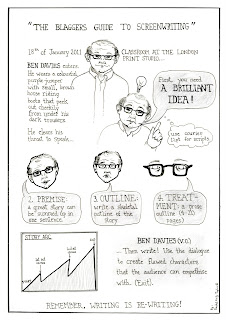 "THE BLAGGERS GUIDE TO SCREENWRITING"
18th of January 2011
CLASSROOM AT THE LONDON
PRINT STUDIO...
BEN DAVIES enters.
He wears a colourful,
purple jumper
with small, brown
horse riding
boots that peek
out cheekily
from under his
dark trousers
He clears his
throat to speak...
First, you need
A BRILLIANT
IDEA!
use courier
font for scripts
2. PREMISE:
a great story can
be summed up in
one sentence
3. OUTLINE:
write a skeletal
outline of the
story
4. TREAT-
MENT: a prose
outline 15-20
pages
STORY ARC
BEN DAVIES (V.O.)
... Then write! Use the dialogue
to create flawed characters
that the audience can empathise
with. (Exit).
REMEMBER, WRITING IS RE-WRITING!